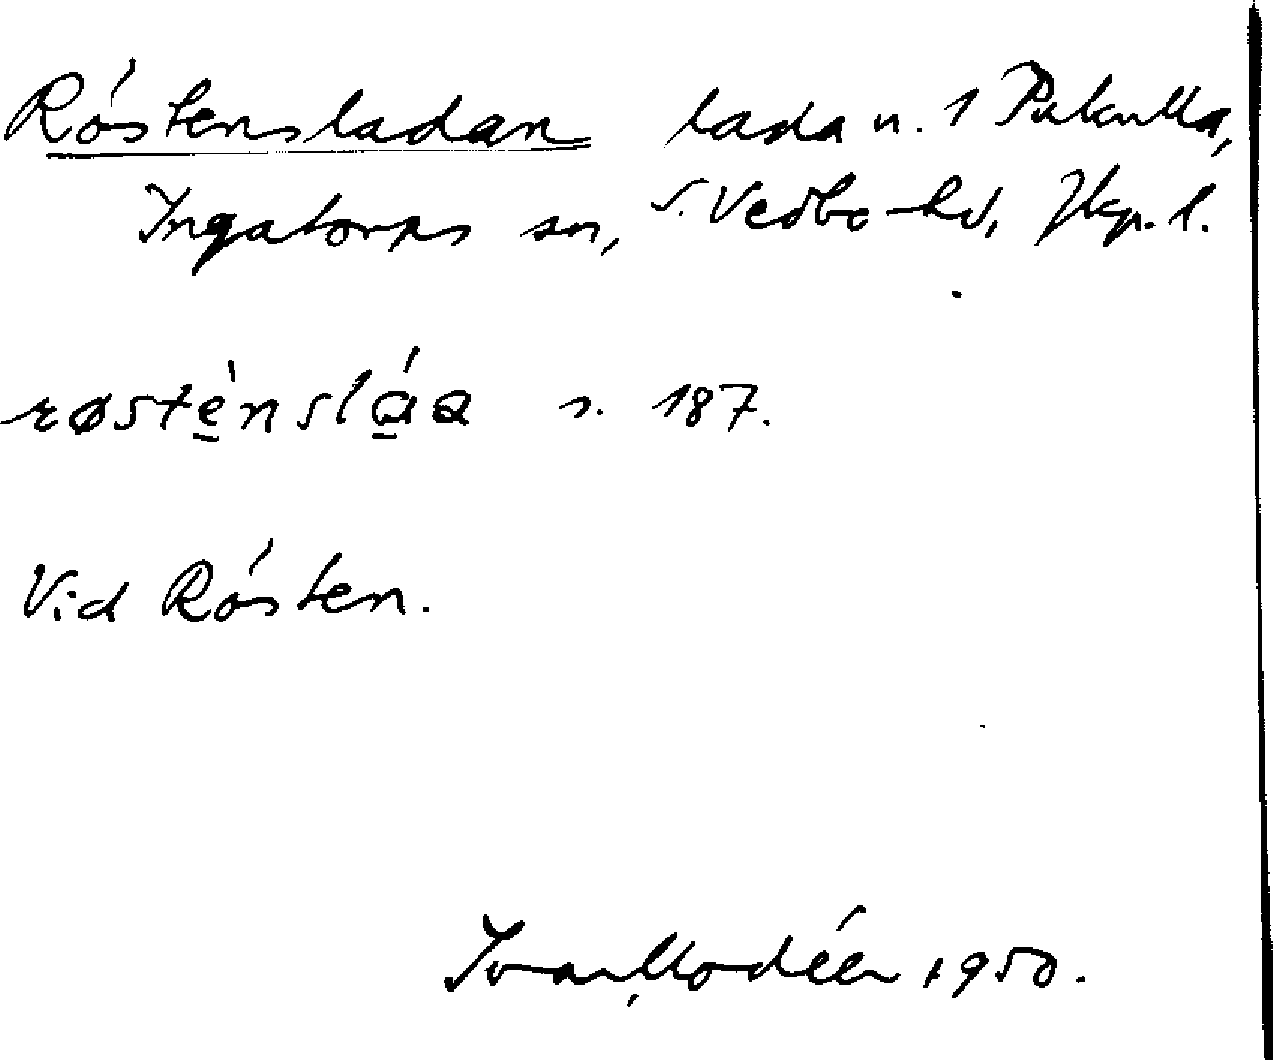 Röstensladan lada u. 1 Pukulla,
Ingatorps sn, S. Vedbo hd, Jkp. l.
røsténsláa s. 187.
Vid Rösten.
Ivar Modéer 1950.